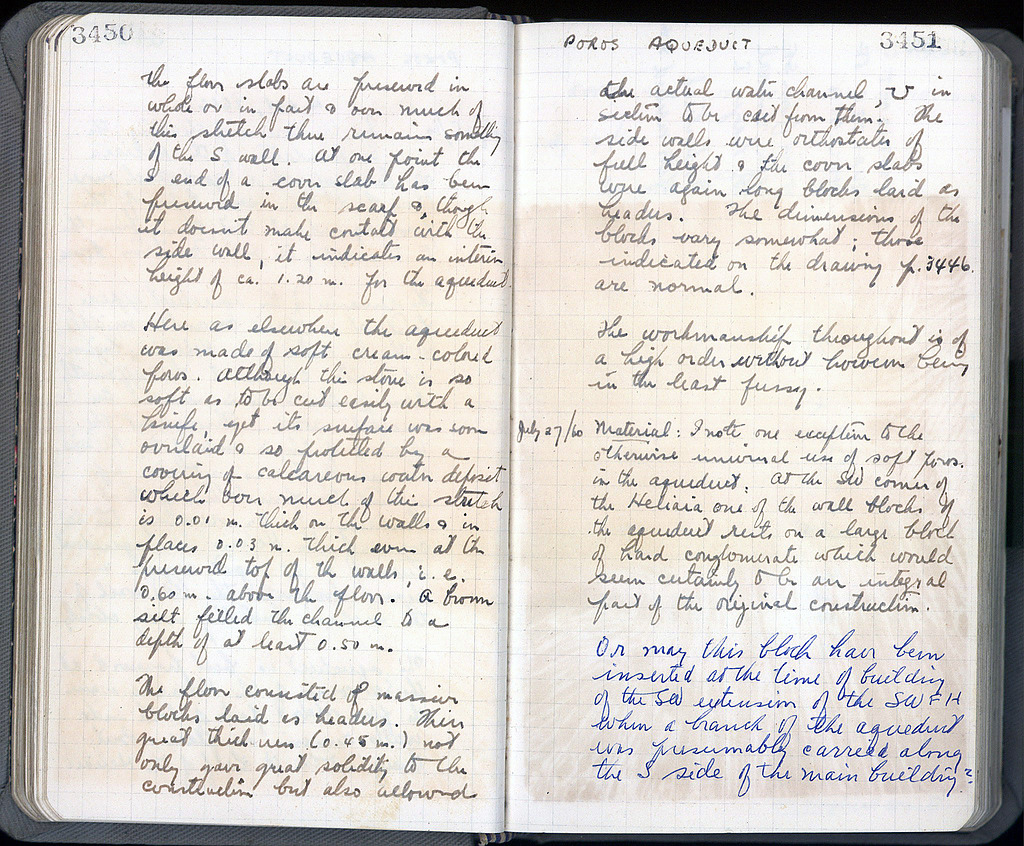 3450
the floor slabs are preserved in
whole or in part & over much of
this stretch there remains something
of the S wall. At one point the
S end of a cover slab has been
preserved in the scarp &, though
it doesn't make contact with the
side wall, it indicates an interior
height of ca. 1.20 m. for the aqueduct.
Here as elsewhere the aqueduct
was made of soft cream-colored
poros. Although this stone is so
soft as to be cut easily with a
knife, yet its surface was soon
overlaid & so protected by a
covering of calcareous water deposit
which over much of this stretch
is 0.01 m. thick on the walls & in
places 0.03 m. thick even at the
preserved top of the walls, i.e.
0.60 m. above the floor. A brown
silt filled the channel to a
depth of at least 0.50 m.
The floor consisted of massive
blocks laid as headers. Their
great thickness (0.45 m.) not
only gave great solidity to the
construction but also allowed
POROS AQUEDUCT
3451
the actual water channel, U in
section to be cut from them. The
side walls were orthostates of
full height & the cover slabs
were again long blocks laid as
headers. The dimensions of the
blocks vary somewhat; those
indicated on the drawing p. 3446.
are normal.
The workmanship throughout is of
a high order without however being
in the least fussy.
July 27/60 Material: I note one exception to the
otherwise universal use of soft poros.
in the aqueduct. At the SW corner of
the Heliaia one of the wall blocks of
the aqueduct rests on a large block
of hard conglomerate which would
seem certainly to be an integral
part of the original construction.
Or may this block have been
inserted at the time of building
of the SW extension of the SWFH
when a branch of the aqueduct
was presumably carried along
the S side of the main building?